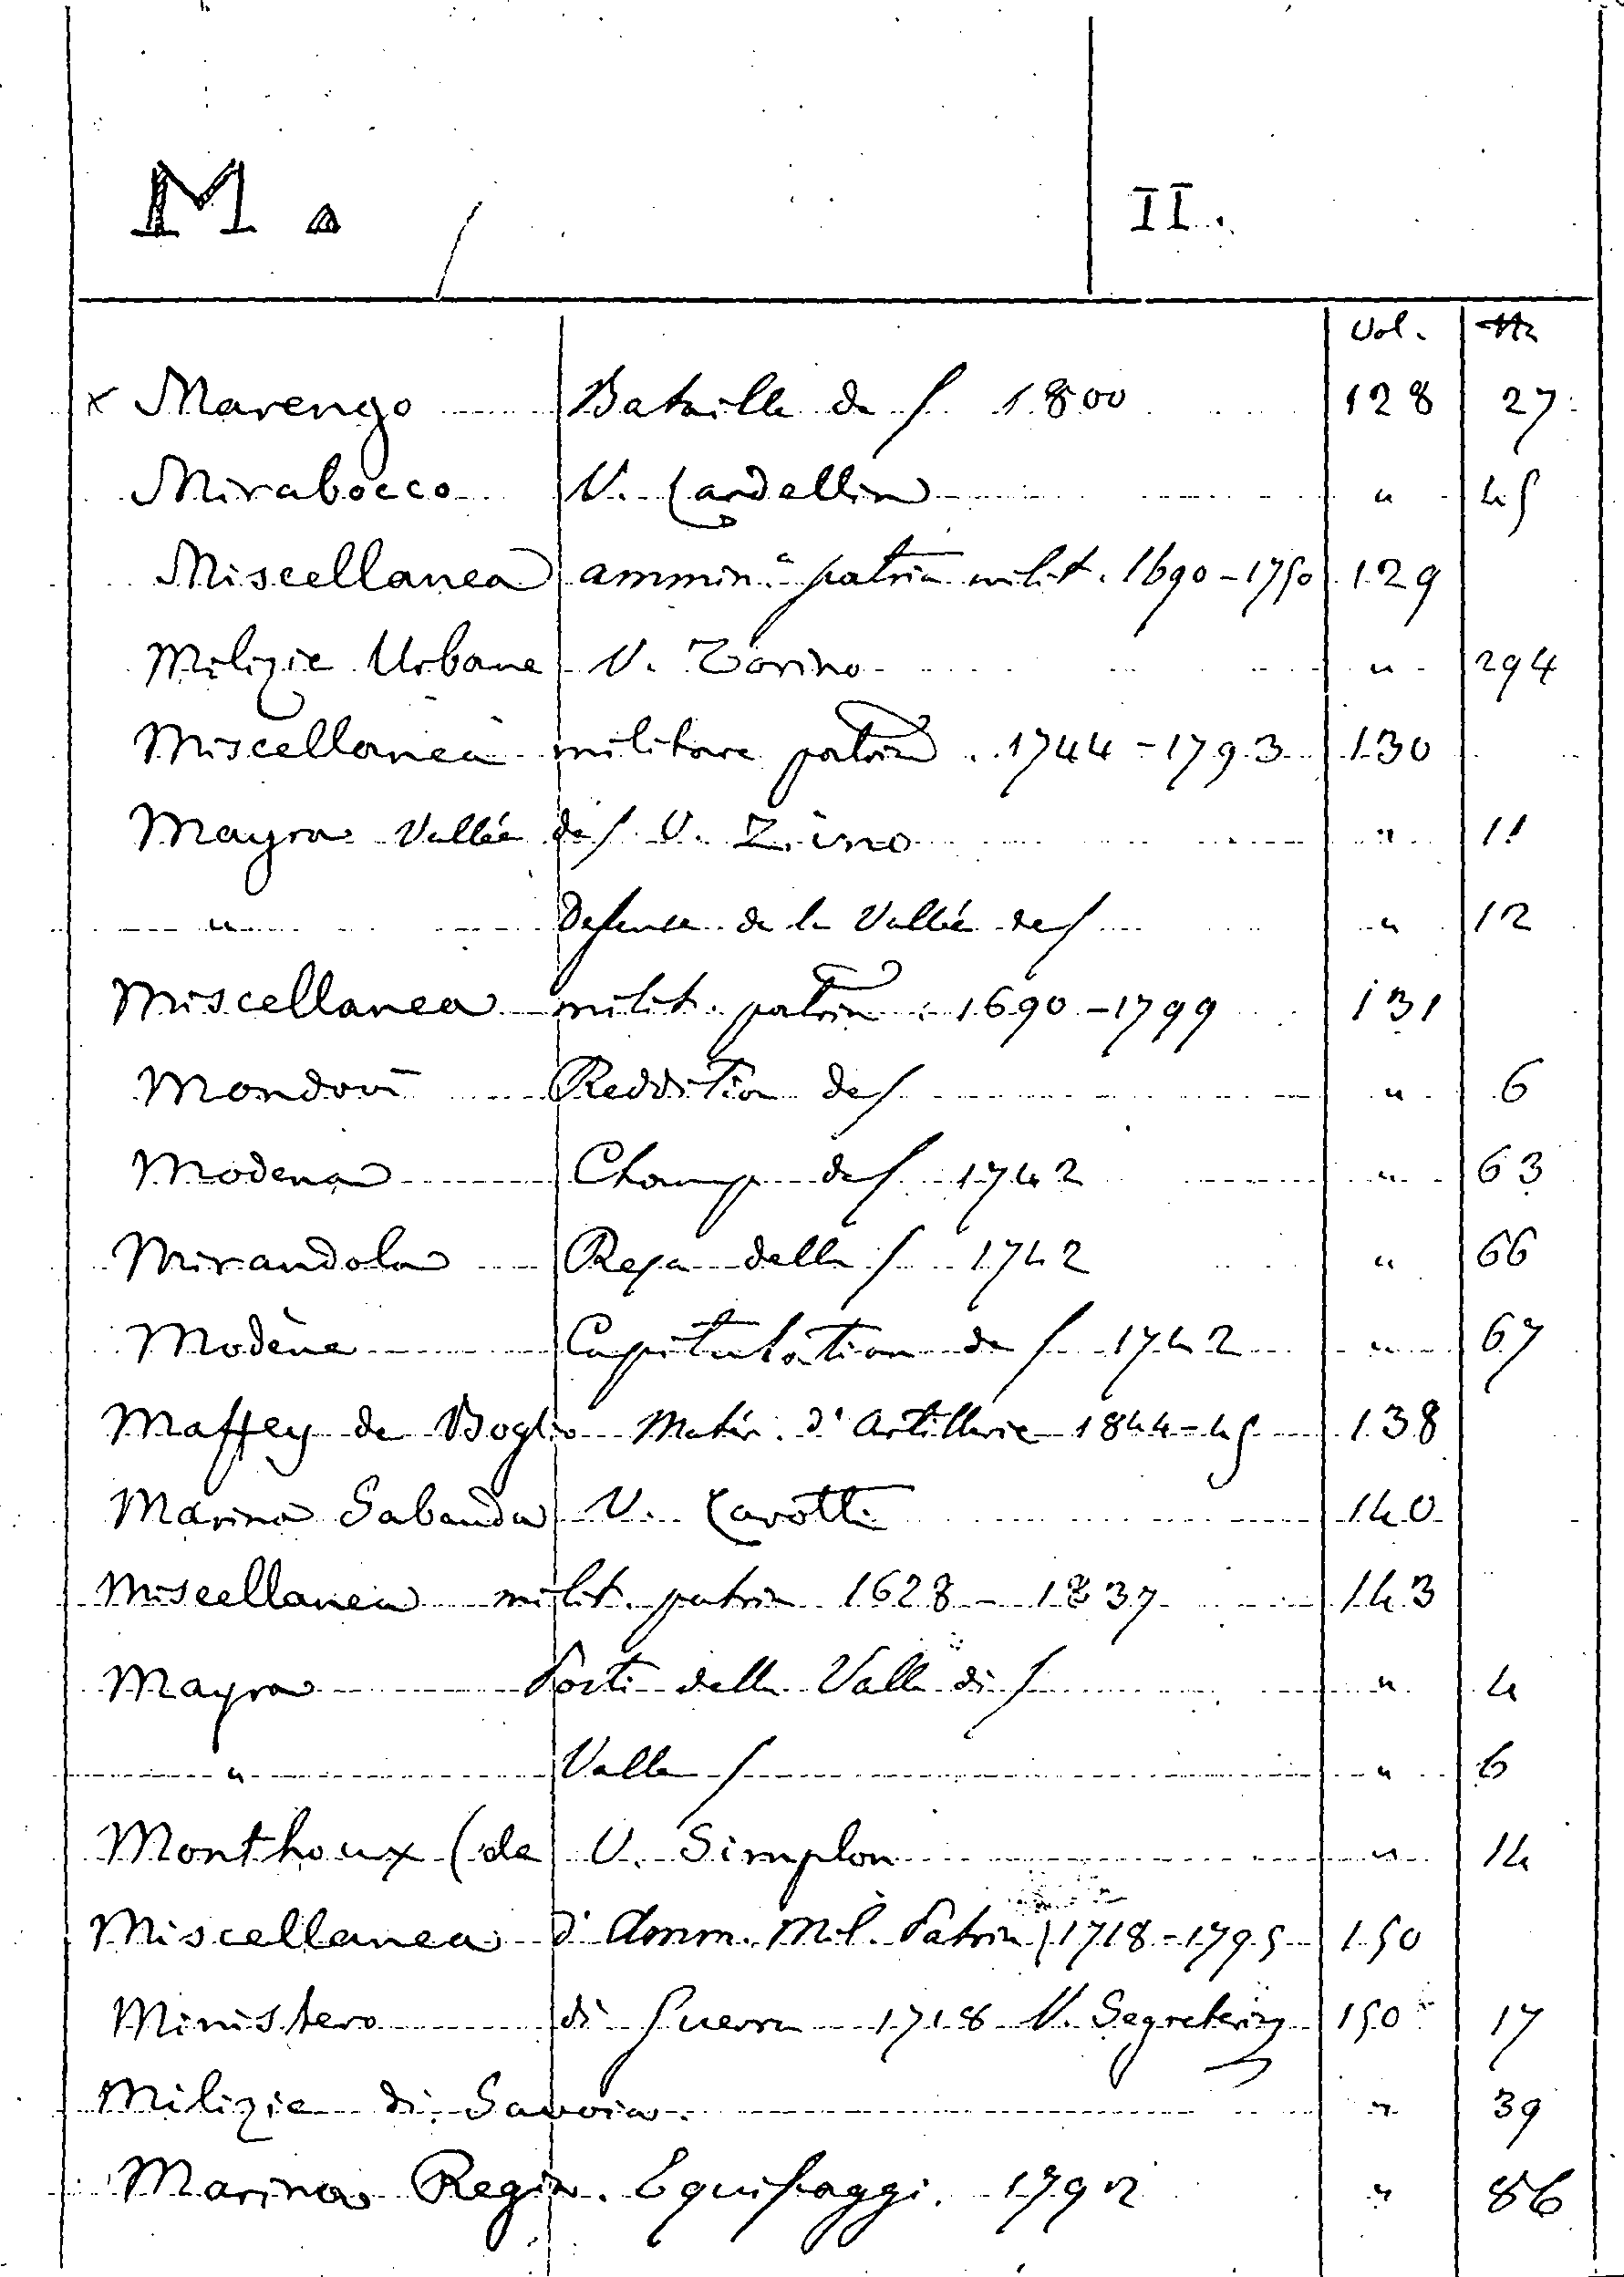 M. II.
Vol. No
x Marengo Bataille de / 1800 128 27
Mirabocco V. Cardellino " 45
Miscellanea ammin.a patria milit. 1690-1750 129
Milizie Urbane V. Torino " 294
Miscellanea militare patria. 1744-1793 130
Mayra Vallée de / V. Zino " 11
" Défense de la Vallée de / " 12
Miscellanea milit. patria. 1690-1799 131
Mondovì Reddition de / " 6
Modena Champ de / 1742 " 63
Mirandola Resa della / 1742 " 66
Modène Capitulation de / 1742 " 67
Maffey de Boglio Matér. d'Artillerie 1844-45 138
Marina Sabauda V. Carotti 140
Miscellanea milit. patria 1628-1837 143
Mayra Forti della Valle di / " 4
" Valle / " 6
Monthoux (de V. Simplon " 14
Miscellanea d'Amm. Mil. Patria / 1718-1795 150
Ministero di Guerra 1718 V. Segreteria 150 17
Milizie di Savoia. " 39
Marina Regia. Equipaggi. 1792 " 86